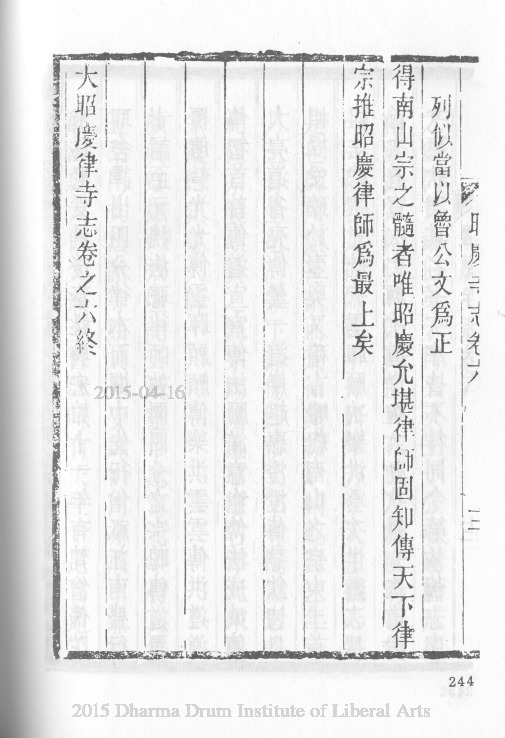 昭慶寺志卷六
列似當以曾公文爲正
得南山宗之髓者唯昭慶允堪律師固知傳天下律
宗推昭慶律師爲最上矣
大昭慶律寺志卷之六終
244
2015-04-16
2015 Dharma Drum Institute of Liberal Arts